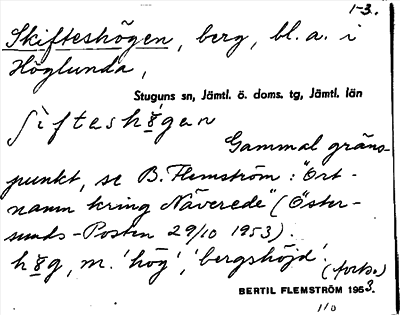 1-3.
Skifteshögen, berg, bl. a. i
Höglunda,
Stuguns sn, Jämtl. ö. doms. tg, Jämtl. län
ʃifteshögen
Gammal gräns-
punkt, se B. Flemström: "Ort-
namn kring Näverede" (Öster-
sunds-Posten 29/10 1953).
hög, m. 'hög', 'bergshöjd'.
(forts.)
BERTIL FLEMSTRÖM 1953.